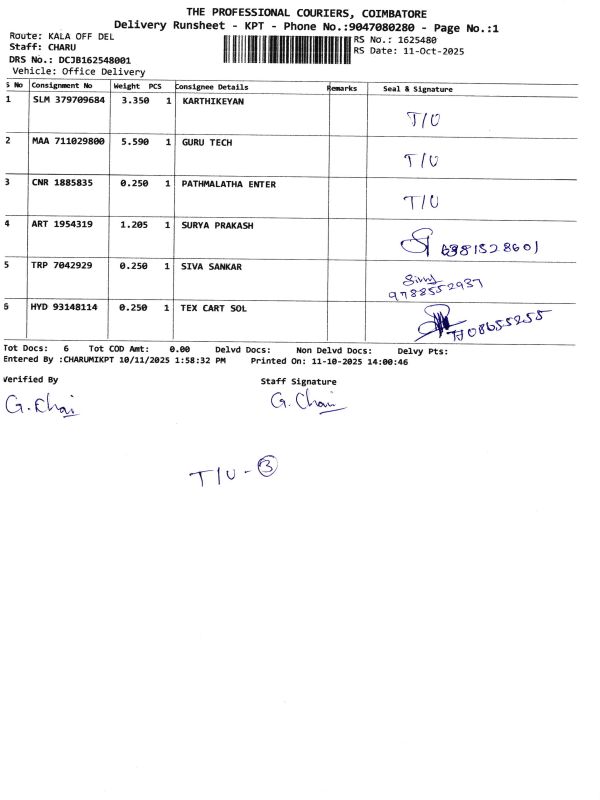 THE PROFESSIONAL COURIERS, COIMBATORE
Delivery Runsheet - KPT - Phone No.:9047080280 - Page No.:1
Route: KALA OFF DEL RS No.: 1625480
Staff: CHARU RS Date: 11-Oct-2025
DRS No.: DCJB162548001
Vehicle: Office Delivery
S No Consignment No Weight PCS Consignee Details Remarks Seal & Signature
1 SLM 379709684 3.350 1 KARTHIKEYAN
T/U
2 MAA 711029800 5.590 1 GURU TECH
T/U
3 CNR 1885835 0.250 1 PATHMALATHA ENTER
T/U
4 ART 1954319 1.205 1 SURYA PRAKASH
6381528601
5 TRP 7042929 0.250 1 SIVA SANKAR
9788552937
6 HYD 93148114 0.250 1 TEX CART SOL
Tot Docs: 6 Tot COD Amt: 0.00 Delvd Docs: Non Delvd Docs: Delvy Pts:
Entered By :CHARUMIKPT 10/11/2025 1:58:32 PM Printed On: 11-10-2025 14:00:46
Verified By Staff Signature
T/U - 3